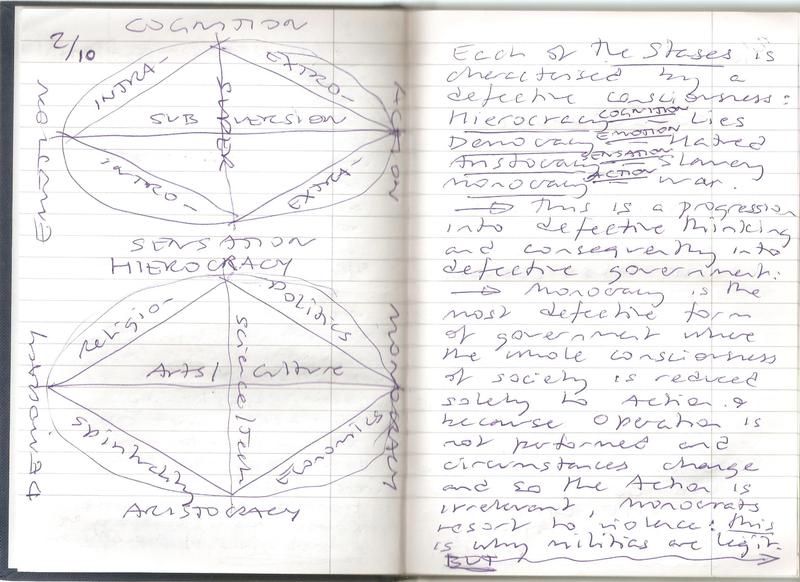 2/10
COGNITION
INTRA-
EXTRO-
EMOTION
SUPER
SUB VERSION
ACTION
INTRO-
EXTRA-
SENSATION
HIEROCRACY
religio-
politics
DEMOCRACY
Arts/ Culture
science/Tech
MONOCRACY
economics
ARISTOCRACY
Each of the Stases is
characterised by a
defective consciousness:
Hierocracy COGNITION Lies
Democracy EMOTION Hatred
Aristocracy SENSATION Slavery
Monocracy ACTION War.
→ This is a progression
into defective thinking
and consequently into
defective government:
→ Monocracy is the
most defective form
of government where
the whole consciousness
of society is reduced
solely to Action &
because Operation is
not performed and
circumstances change
and so the Action is
irrelevant, monocrats
resort to violence: this
is why militias are legit.
BUT